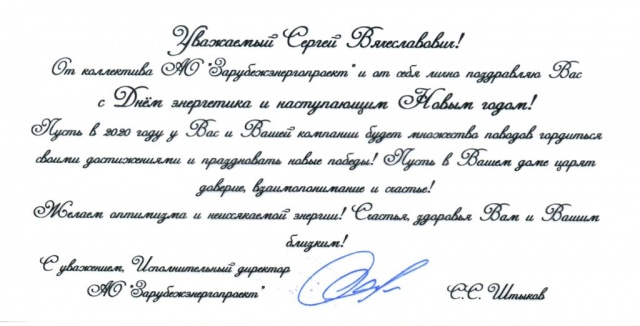 Уважаемый Сергей Вячеславович!
От коллектива АО "Зарубежэнергопроект" и от себя лично поздравляю Вас
с Днём энергетика и наступающим Новым годом!
Пусть в 2020 году у Вас и Вашей компании будет множество поводов гордиться
своими достижениями и праздновать новые победы! Пусть в Вашем доме царят
доверие, взаимопонимание и счастье!
Желаем оптимизма и неиссякаемой энергии! Счастья, здоровья Вам и Вашим
близким!
С уважением, Исполнительный директор
АО "Зарубежэнергопроект"
С.С. Штыков